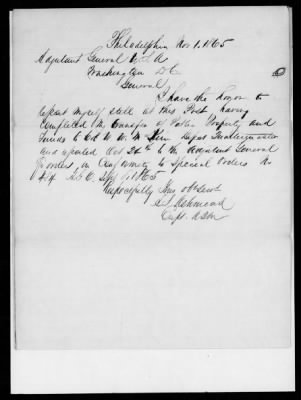 Philadelphia Nov 1. 1865
Adjutant General U.S.A
Washington D.C
General,
I have the honor to
report myself still at this Post, having
completed the transfer of Public Property and
Funds to Col W. W.
and reported Oct 26th to the Adjutant General
for orders, in conformity to Special Orders No
A.G.O. 1865
Respectfully Your obt Servt
Ashmead
Capt. AQM